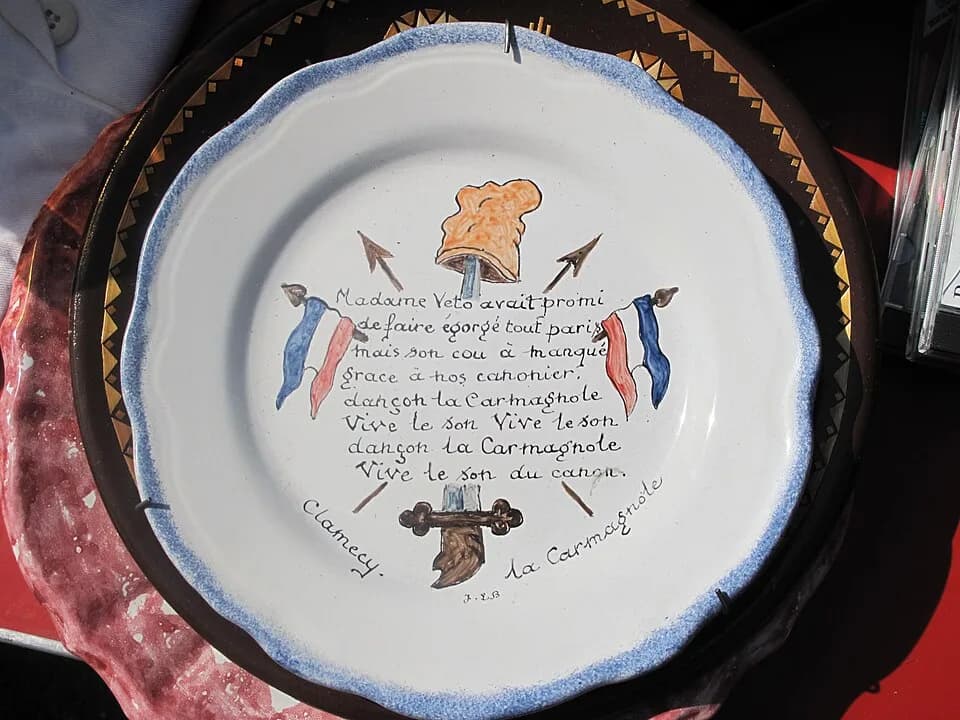 Madame Veto avait promi
de faire égorgé tout paris
mais son cou à manqué
grace à nos canonier.
dançon la Carmagnole
Vive le son Vive le son
dançon la Carmagnole
Vive le son du canon.
Clamecy.
la Carmagnole